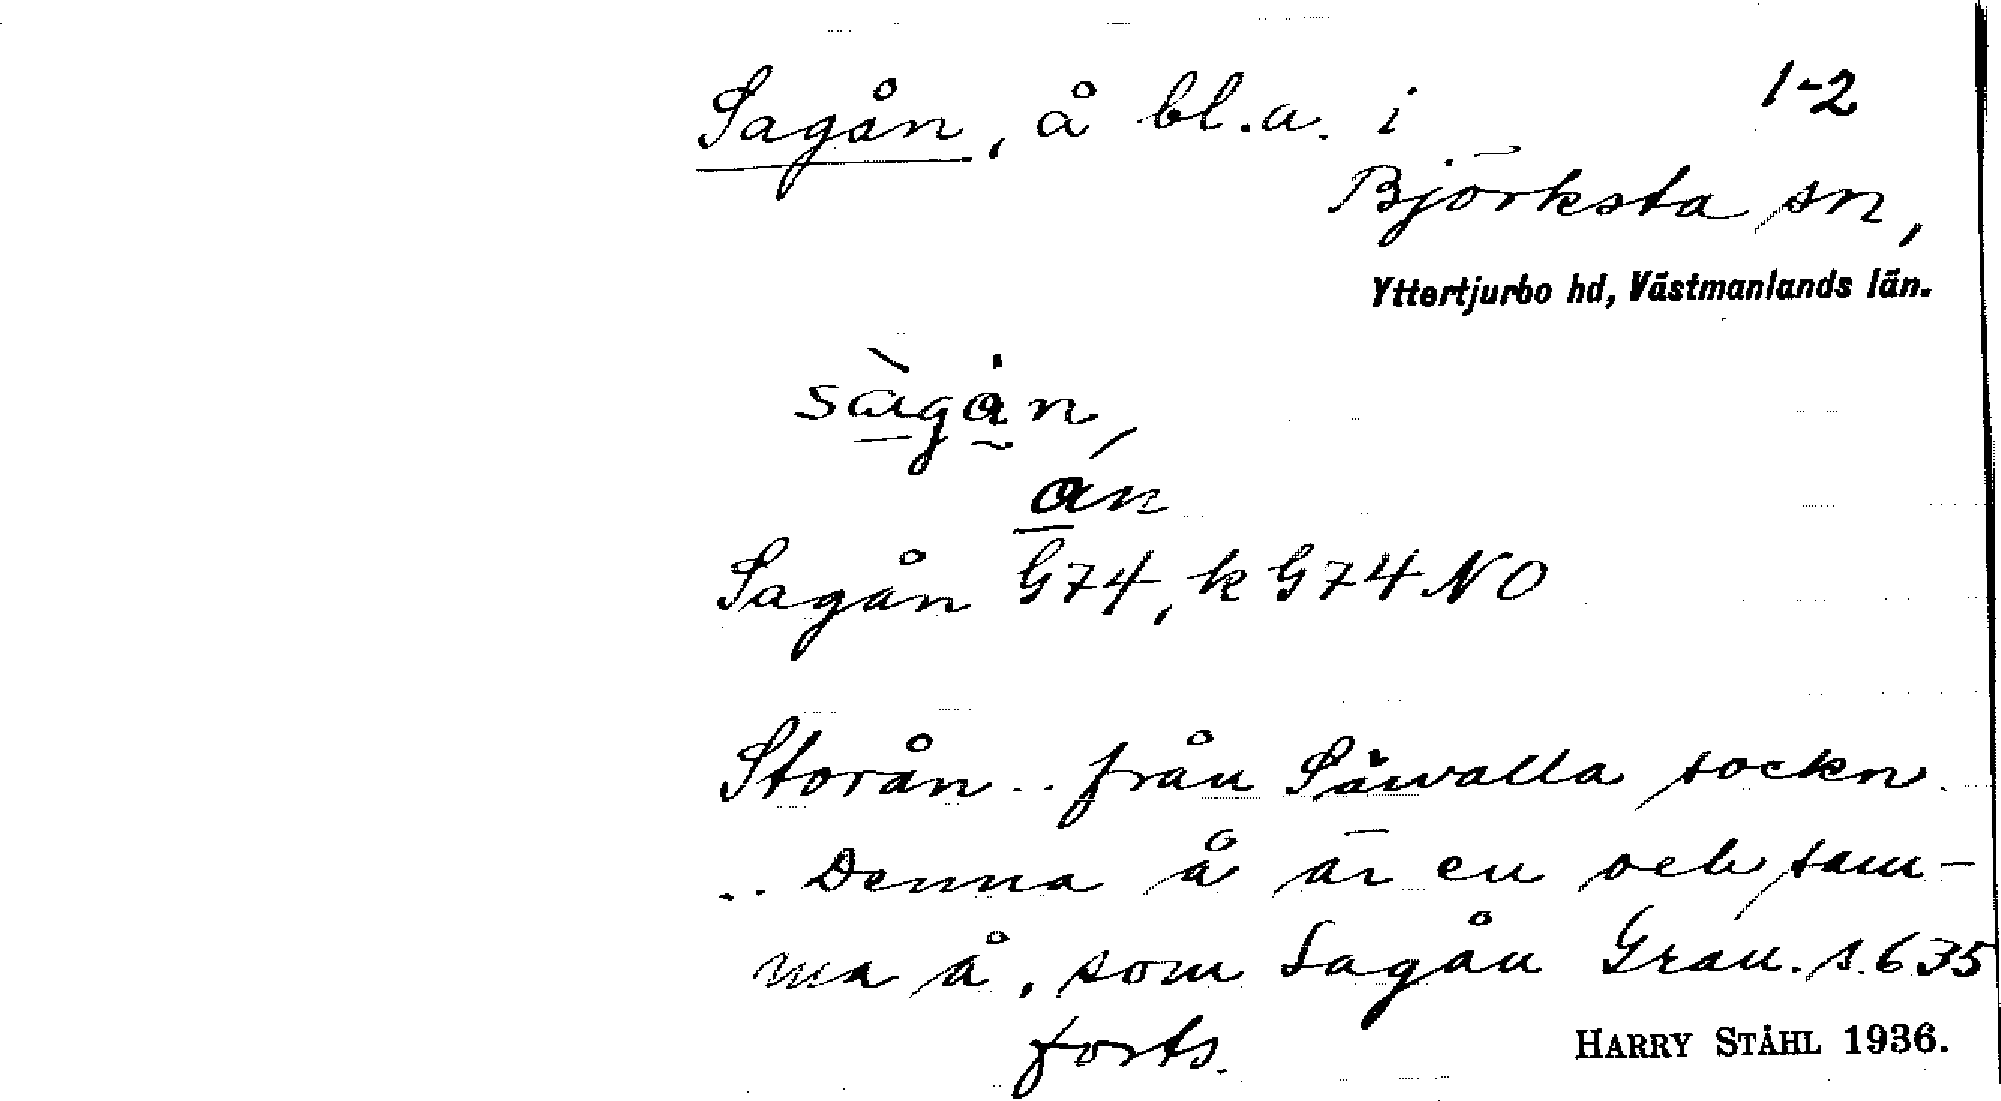 Sagån, å bl.a. i
1-2
Björksta sn,
Yttertjurbo hd, Västmanlands län.
sàgån,
ån
Sagån G74, k G74 NO
Storån .. från Säwalla sockn
.. Denna å är en och sam-
ma å, som Sagån Grau. s. 635
forts.
HARRY STÅHL 1936.